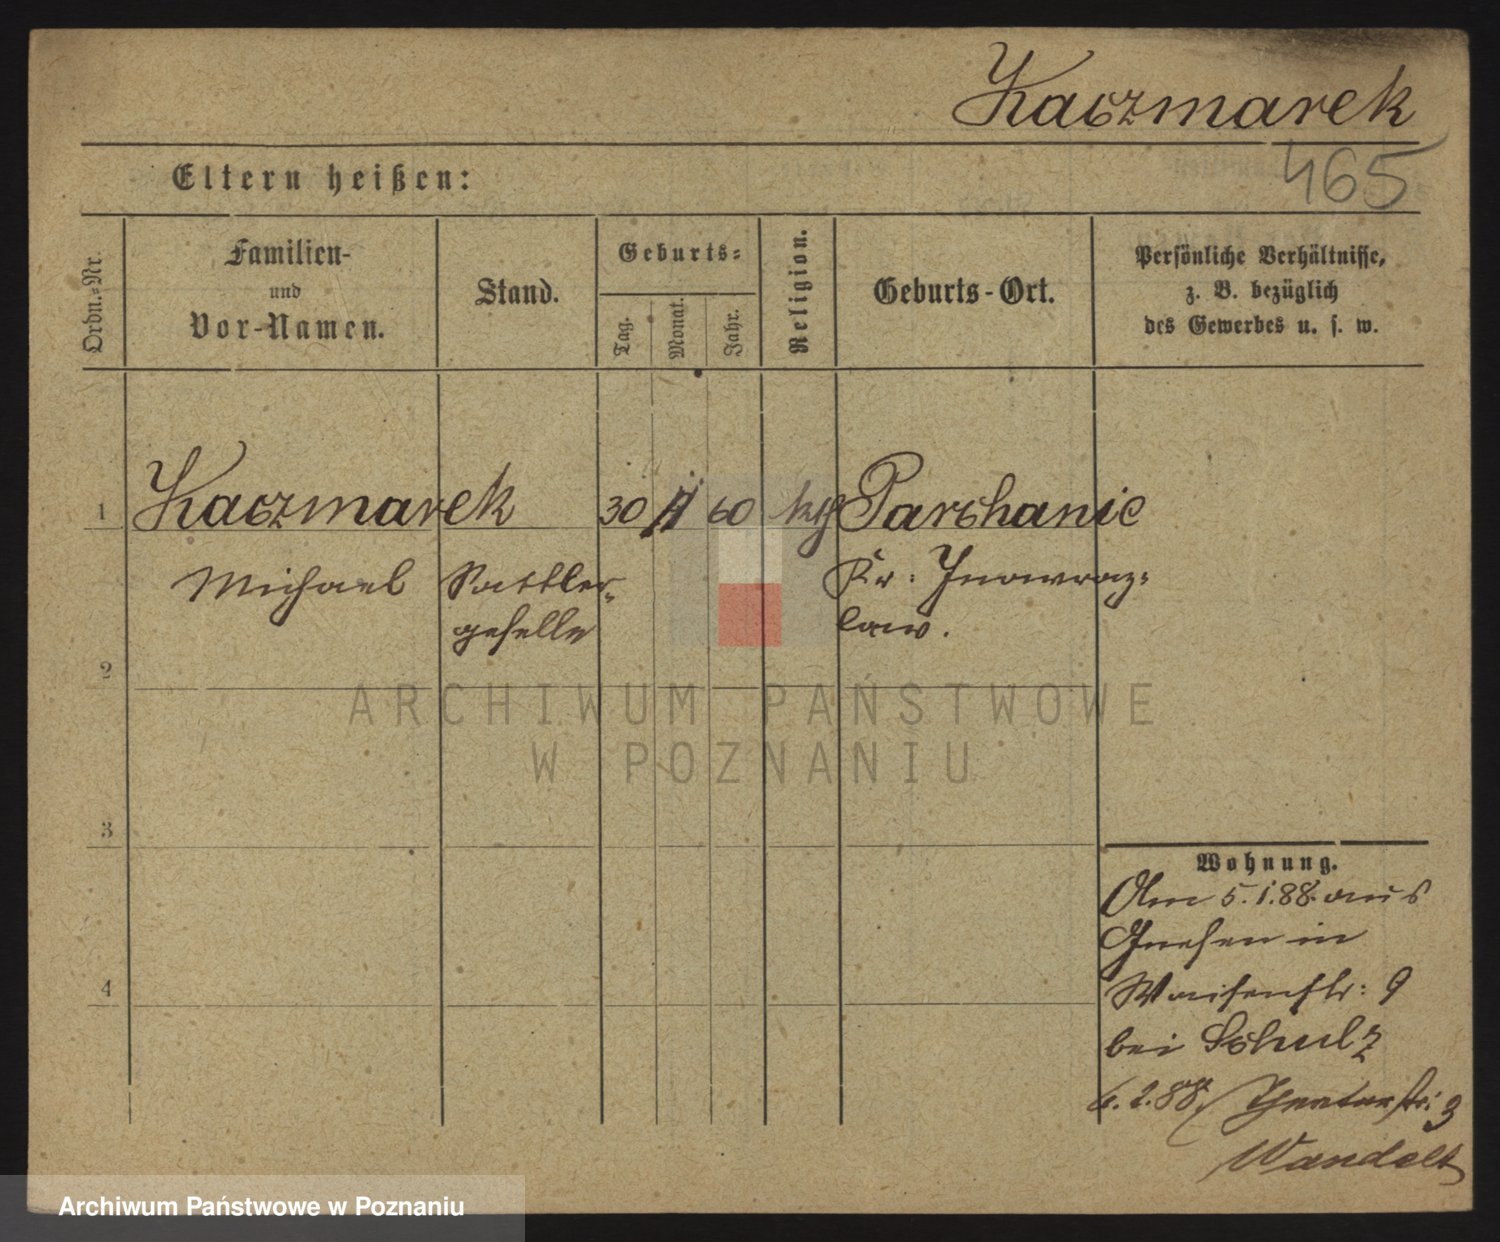 Kaczmarek
465
Eltern heißen:
Ordn.-Nr.
Familien-
und
Vor-Namen.
Stand.
Geburts-
Tag.
Monat.
Jahr.
Religion.
Geburts-Ort.
Persönliche Verhältnisse,
z. B. bezüglich
des Gewerbes u. s. w.
1 Kaczmarek 30 60 kth Parchanie
Michael Sattler- Kr: Inowraz-
geselle law.
2
ARCHIWUM PAŃSTWOWE
W POZNANIU
3
Wohnung.
Am 5.1.88. aus
Gnesen in
4
Waisenstr: 9
bei Schulz
6.2.88. Theaterstr: 3
Wandelt
Archiwum Państwowe w Poznaniu